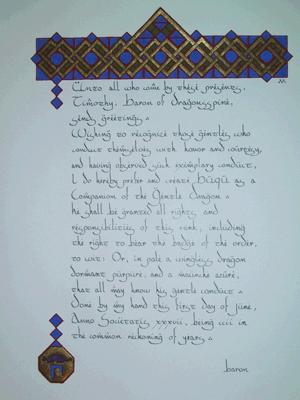 Unto all who come by these presents,
Timothy, Baron of Dragonsspine,
sends greetings
Wishing to recognize those gentles, who
conduct themselves with honor and courtesy,
and having observed such exemplary conduct,
I do hereby prefer and create as a
Companion of the Gentle Dragon
He shall be granted all rights, and
responsibilities of this rank, including
the right to bear the badge of the order,
to wit: Or, in pale a wingless dragon
dormant purpure, and a maunche azure,
that all may know his gentle conduct
Done by my hand this first day of June,
Anno Societatis xxxvii, being in
the common reckoning of years
baron